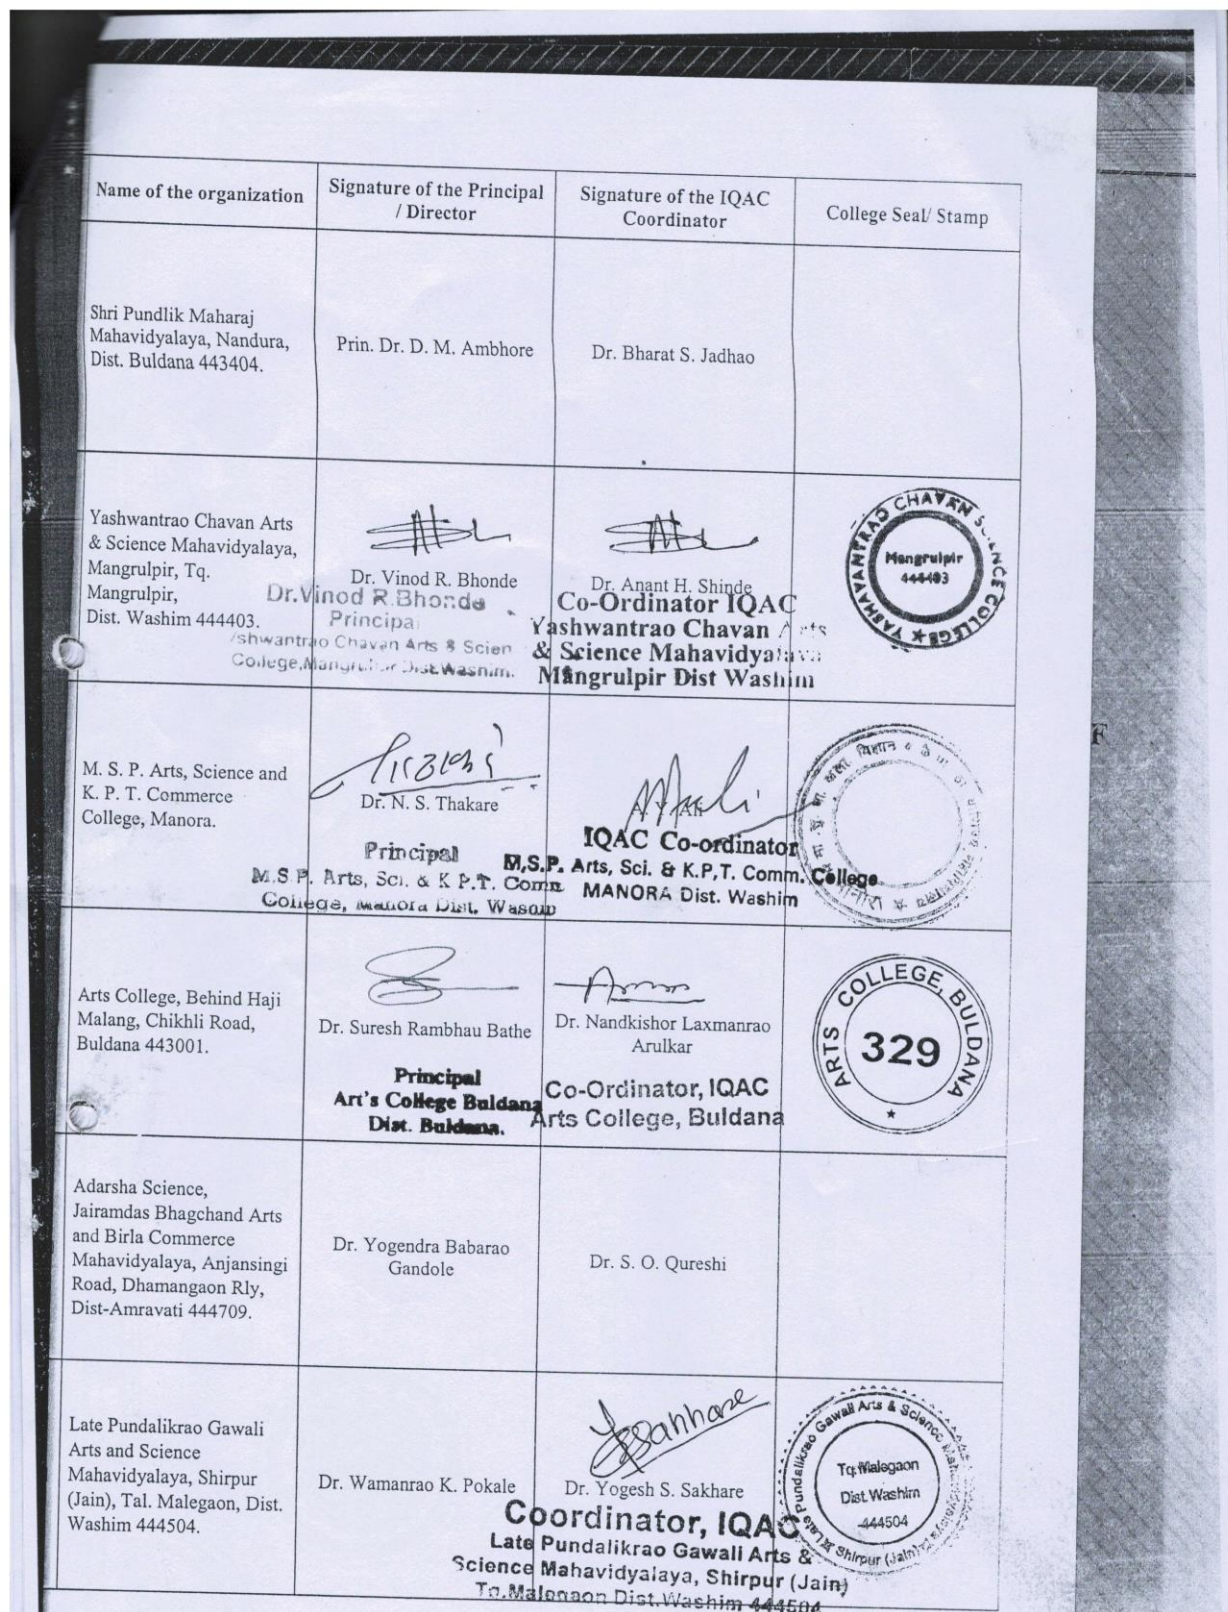 Name of the organization
Signature of the Principal
/ Director
Signature of the IQAC
Coordinator
College Seal/ Stamp
Shri Pundlik Maharaj
Mahavidyalaya, Nandura,
Dist. Buldana 443404.
Prin. Dr. D. M. Ambhore
Dr. Bharat S. Jadhao
Yashwantrao Chavan Arts
& Science Mahavidyalaya,
Mangrulpir, Tq.
Mangrulpir,
Dist. Washim 444403.
Dr. Vinod R. Bhonde
Dr.Vinod R.Bhonde
Principal
shwantrao Chavan Arts & Scien
College,Mangrulpir Dist.Washim.
Dr. Anant H. Shinde
Co-Ordinator IQAC
Yashwantrao Chavan Arts
& Science Mahavidyalaya
Mangrulpir Dist Washim
YASHAVANTRAO CHAVAN SCIENCE COLLEGE
Mangrulpir
444403
M. S. P. Arts, Science and
K. P. T. Commerce
College, Manora.
Dr. N. S. Thakare
Principal
M.S.P. Arts, Sci. & K P.T. Comm
College, Manora Dist. Wasim
IQAC Co-ordinator
M.S.P. Arts, Sci. & K.P.T. Comm. College
MANORA Dist. Washim
F
Arts College, Behind Haji
Malang, Chikhli Road,
Buldana 443001.
Dr. Suresh Rambhau Bathe
Principal
Art's College Buldana
Dist. Buldana.
Dr. Nandkishor Laxmanrao
Arulkar
Co-Ordinator, IQAC
Arts College, Buldana
ARTS COLLEGE, BULDANA
329
Adarsha Science,
Jairamdas Bhagchand Arts
and Birla Commerce
Mahavidyalaya, Anjansingi
Road, Dhamangaon Rly,
Dist-Amravati 444709.
Dr. Yogendra Babarao
Gandole
Dr. S. O. Qureshi
Late Pundalikrao Gawali
Arts and Science
Mahavidyalaya, Shirpur
(Jain), Tal. Malegaon, Dist.
Washim 444504.
Dr. Wamanrao K. Pokale
Sakhare
Dr. Yogesh S. Sakhare
Coordinator, IQAC
Late Pundalikrao Gawali Arts &
Science Mahavidyalaya, Shirpur (Jain)
Tq.Malegaon Dist.Washim 444504
Late Pundalikrao Gawali Arts & Science Mahavidyalaya Shirpur (Jain)
Tq.Malegaon
Dist.Washim
444504